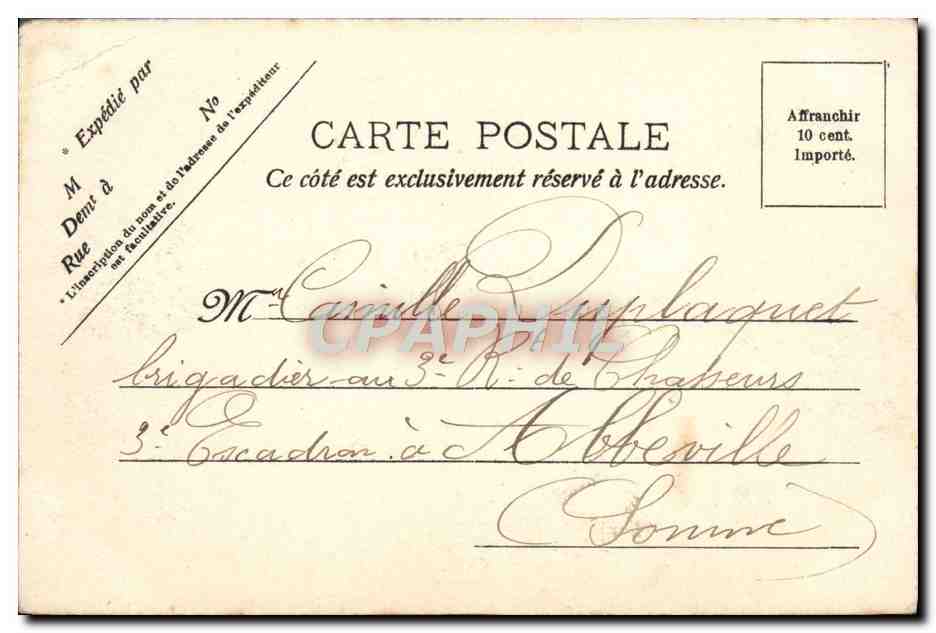 * Expédié par
M
Demt à
Rue No
* L'inscription du nom et de l'adresse de l'expéditeur
est facultative.
CARTE POSTALE
Ce côté est exclusivement réservé à l'adresse.
Affranchir
10 cent.
Importé.
Mr Camille Duplaquet
CPAPHIL
brigadier au 3e Rt de Chasseurs
3e Escadron à Abbeville
(Somme)